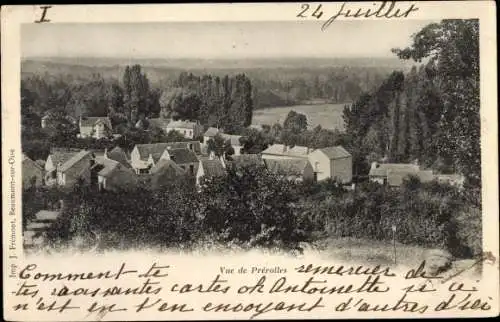 I
24 Juillet
Imp. J. Frémont, Beaumont-sur-Oise
Vue de Prérolles
Comment te remercier de
tes ravissantes cartes Antoinette si ce
n'est en t'en envoyant d'autres d'ici